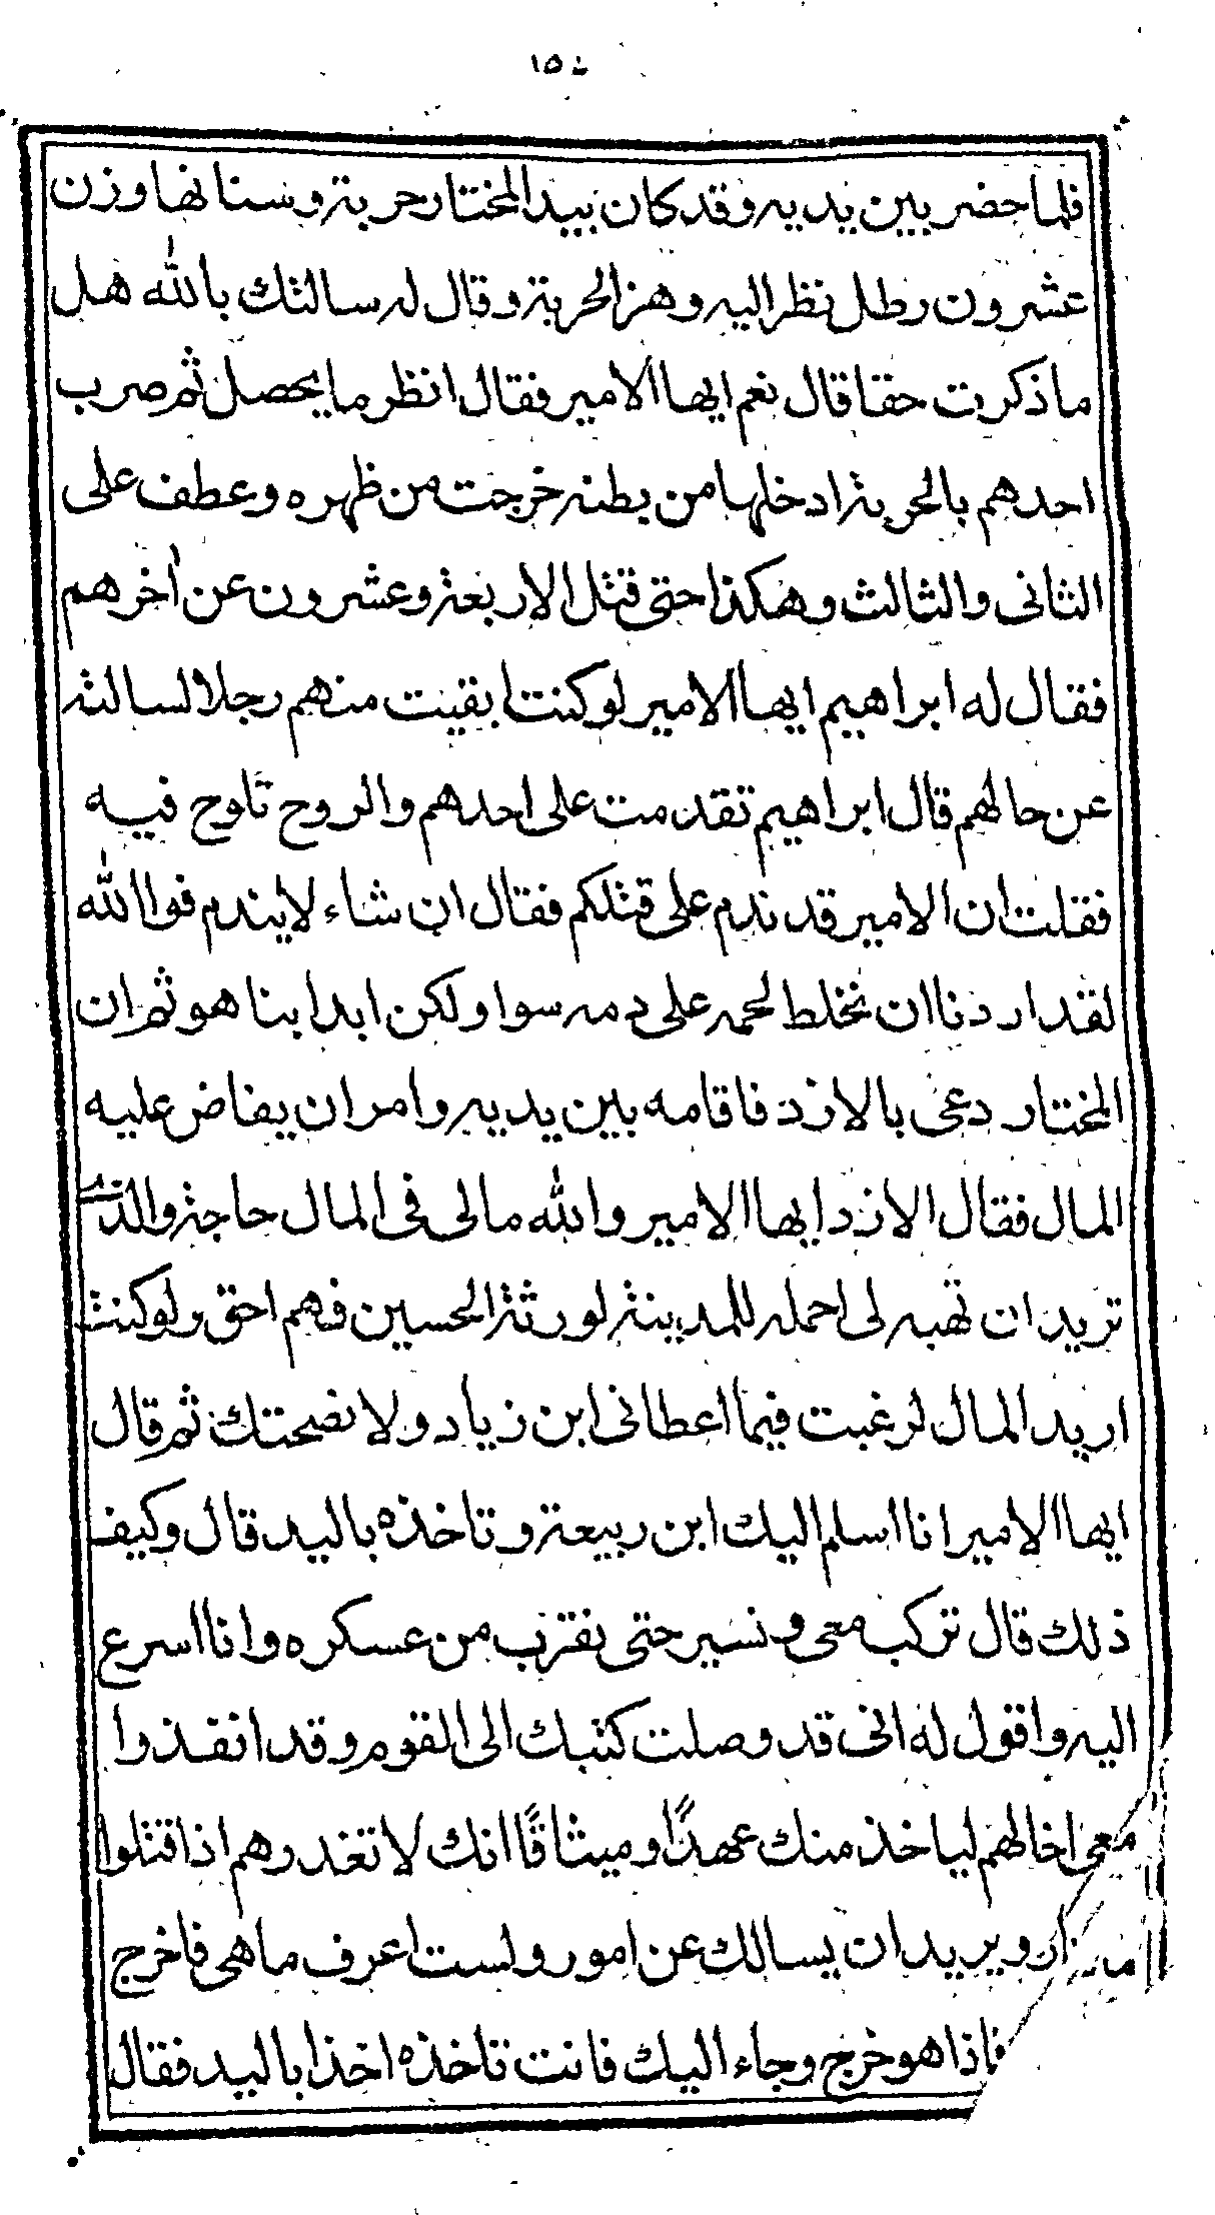 فلما حضر بين يديه وقد كان بيد المختار حربة وسنانها وزن
عشرون رطل نظر اليه وهز الحربة وقال له سالتك بالله هل
ما ذكرت حقا قال نعم ايها الامير فقال انظر ما يحصل ثم ضرب
احدهم بالحربة ادخلها من بطنه خرجت من ظهره وعطف على
الثانى والثالث وهكذا حتى قتل الاربعة وعشرون عن اخرهم
فقال له ابراهيم ايها الامير لو كنت ابقيت منهم رجلا لسالته
عن حالهم قال ابراهيم تقدمت على احدهم والروح تلوح فيه
فقلت ان الامير قد ندم على قتلكم فقال ان شاء لا يندم فوالله
لقد اردنا ان نخلط لحمه على دمه سوا ولكن ابدا بنا هو ثم ان
المختار دعى بالازد فاقامه بين يديه وامر ان يفاض عليه
المال فقال الازد ايها الامير والله مالى فى المال حاجة والذى
تريد ان تهبه لى احمله للمدينة لورثة الحسين فهم احق ولو كنت
اريد المال لرغبت فيما اعطانى ابن زياد ولا نصحتك ثم قال
ايها الامير انا اسلم اليك ابن ربيعة وتاخذه باليد قال وكيف
ذلك قال تركب معى ونسير حتى نقرب من عسكره وانا اسرع
اليه واقول له انى قد وصلت كتبك الى القوم وقد انفذوا
معى اخا لهم لياخذ منك عهدًا وميثاقًا انك لا تغدرهم اذا قتلوا
ويريد ان يسالك عن امور ولست اعرف ما هى فاخرج
فاذا هو خرج وجاء اليك فانت تاخذه اخذا باليد فقال